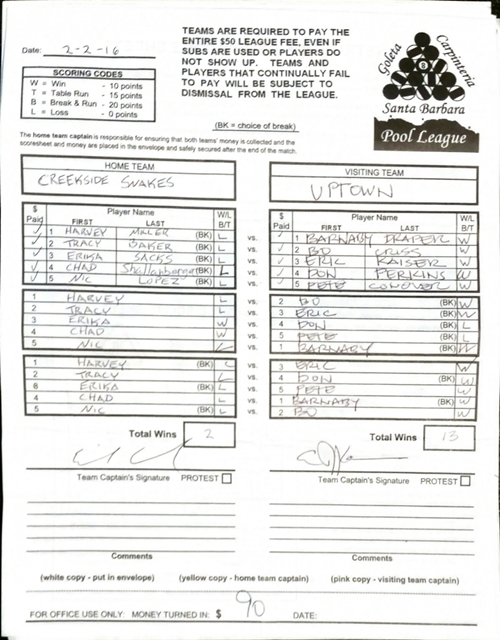 TEAMS ARE REQUIRED TO PAY THE
ENTIRE $50 LEAGUE FEE, EVEN IF
SUBS ARE USED OR PLAYERS DO
NOT SHOW UP. TEAMS AND
PLAYERS THAT CONTINUALLY FAIL
TO PAY WILL BE SUBJECT TO
DISMISSAL FROM THE LEAGUE.
Date: 2-2-16
SCORING CODES
W = Win - 10 points
T = Table Run - 15 points
B = Break & Run - 20 points
L = Loss - 0 points
Goleta Carpinteria
Santa Barbara
Pool League
(BK = choice of break)
The home team captain is responsible for ensuring that both teams' money is collected and the
scoresheet and money are placed in the envelope and safely secured after the end of the match.
HOME TEAM
CREEKSIDE SNAKES
$ Paid Player Name FIRST LAST W/L B/T
1 HARVEY MILLER (BK) L vs.
2 TRACY BAKER (BK) L vs.
3 ERIKA SACKS (BK) L vs.
4 CHAD Shallanberger (BK) L vs.
5 NIC LOPEZ (BK) L vs.
1 HARVEY L vs.
2 TRACY L vs.
3 ERIKA W vs.
4 CHAD W vs.
5 NIC L vs.
1 HARVEY (BK) L vs.
2 TRACY L vs.
ERIKA (BK) L vs.
4 CHAD L vs.
5 NIC (BK) L vs.
Total Wins 2
Team Captain's Signature PROTEST
Comments
VISITING TEAM
UPTOWN
$ Paid Player Name FIRST LAST W/L B/T
1 BARNABY DRAPER W
2 BO CRISS W
3 ERIC KAISER W
4 DON PERKINS W
5 PETE CONOVER W
2 BO (BK) W
3 ERIC (BK) W
4 DON (BK) L
5 PETE (BK) L
1 BARNABY (BK) W
3 ERIC W
4 DON (BK) W
5 PETE W
1 BARNABY (BK) W
2 BO W
Total Wins 13
Team Captain's Signature PROTEST
Comments
(white copy - put in envelope) (yellow copy - home team captain) (pink copy - visiting team captain)
FOR OFFICE USE ONLY: MONEY TURNED IN: $ 90 DATE: